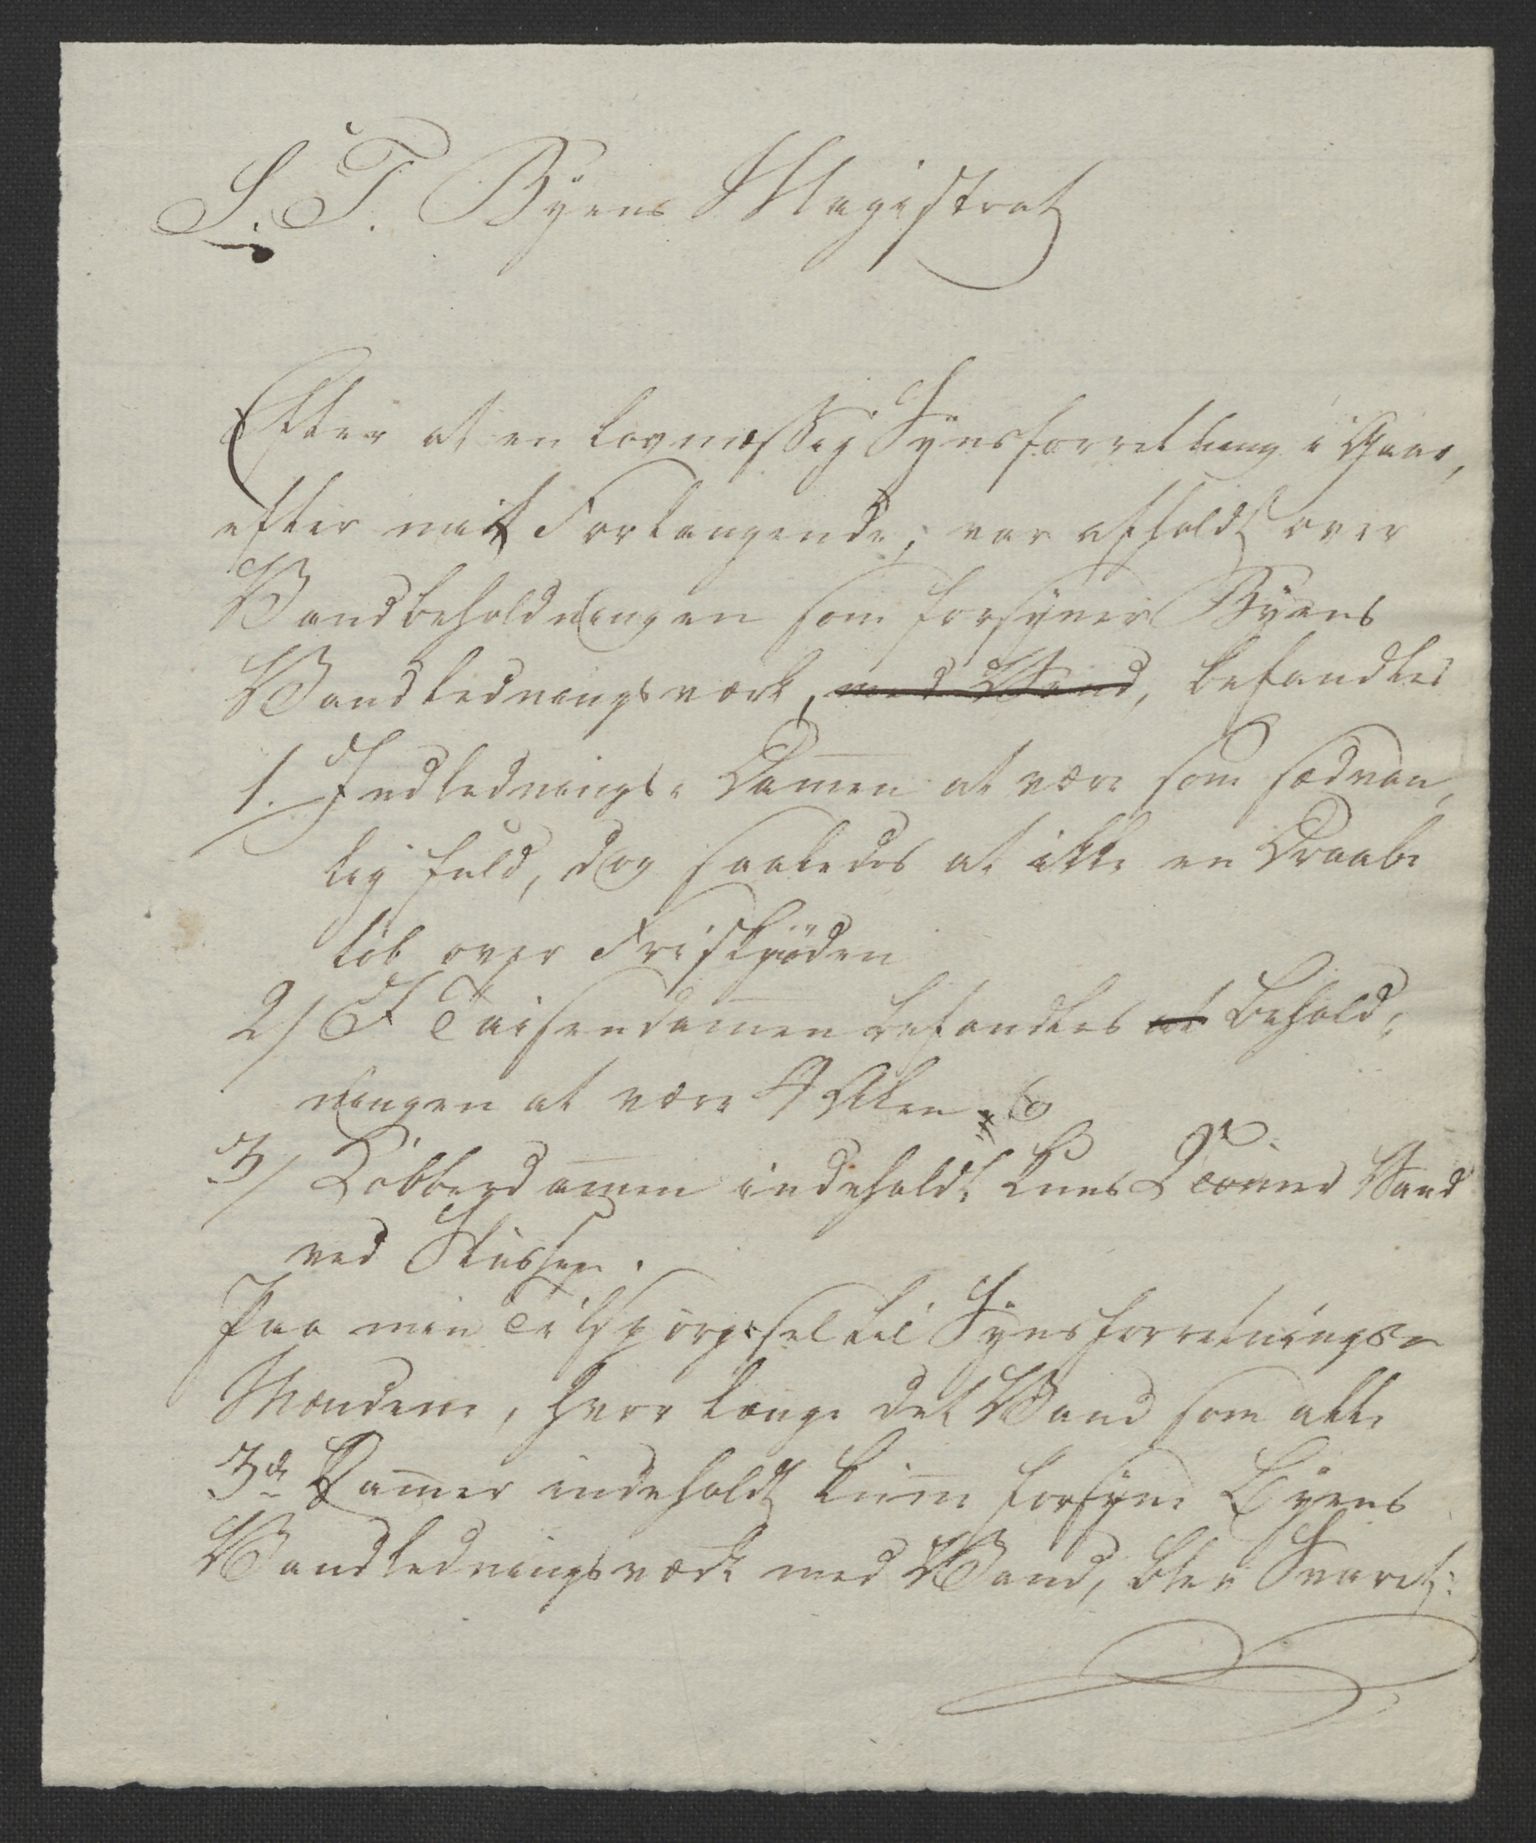 S. T. Byens Magistrat
Efter at en lovmæssig Synsforretning i Gaar,
efter mit Forlangende, var afholdt over
Vandbeholdningen som forsyner Byens
Vandledningsværk, med Vand, befandtes
1. Indlednings-Dammen at være som sædvan-
lig fuld, dog saaledes at ikke en Draabe
løb over Friskjøden
2/ I Taisendammen befandtes at Behold-
ningen at være 4 Alen
3/ Kobberdammen indeholdt kuns 2 Tommer Vand
ved Slussen.
Paa min Tilspørgsel til Synsforretnings-
Mændene, hvor længe det Vand som alle
3de Dammer indeholdt kunne forsyne Byens
Vandledningsværk med Vand, blev Svaret: